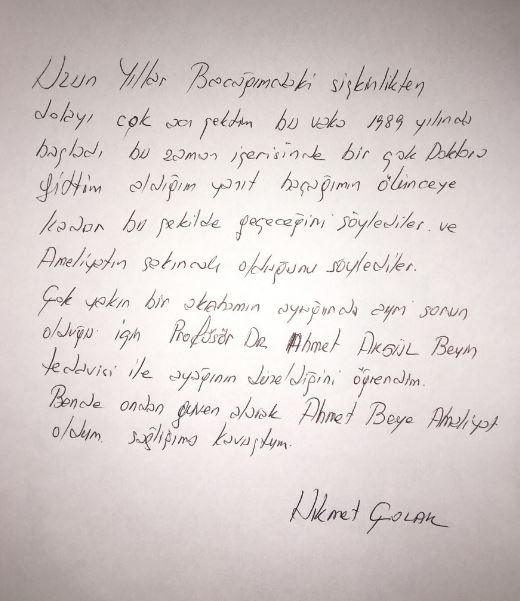 Uzun Yıllar Bacağımdaki şişkinlikten
dolayı çok acı çektim bu vaka 1989 yılında
başladı, bu zaman içerisinde bir çok Doktora
Gittim aldığım yanıt bacağımın ölünceye
kadar bu şekilde geçeceğini söylediler. ve
Ameliyatın sakıncalı olduğunu söylediler.
Çok yakın bir akrabamın ayağında aynı sorun
olduğu için Profösör Dr. Ahmet AKGÜL Beyin
tedavisi ile ayağının düzeldiğini öğrendim.
Bende ondan güven alarak Ahmet Beye Ameliyat
oldum. sağlığıma kavuştum.
Nikmet ÇOLAK